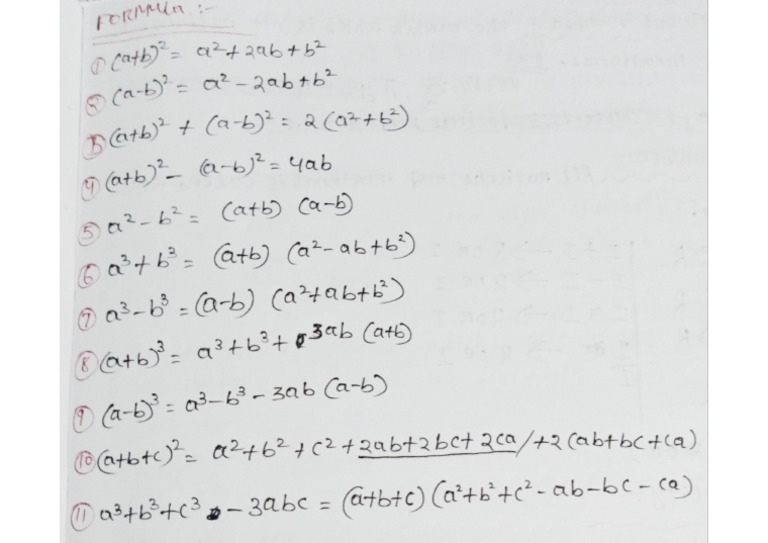 FORMULA :-
① (a+b)² = a² + 2ab + b²
② (a-b)² = a² - 2ab + b²
③ (a+b)² + (a-b)² = 2(a² + b²)
④ (a+b)² - (a-b)² = 4ab
⑤ a² - b² = (a+b) (a-b)
⑥ a³ + b³ = (a+b) (a² - ab + b²)
⑦ a³ - b³ = (a-b) (a² + ab + b²)
⑧ (a+b)³ = a³ + b³ + 3ab (a+b)
⑨ (a-b)³ = a³ - b³ - 3ab (a-b)
⑩ (a+b+c)² = a² + b² + c² + 2ab + 2bc + 2ca / +2(ab+bc+ca)
⑪ a³ + b³ + c³ - 3abc = (a+b+c) (a² + b² + c² - ab - bc - ca)